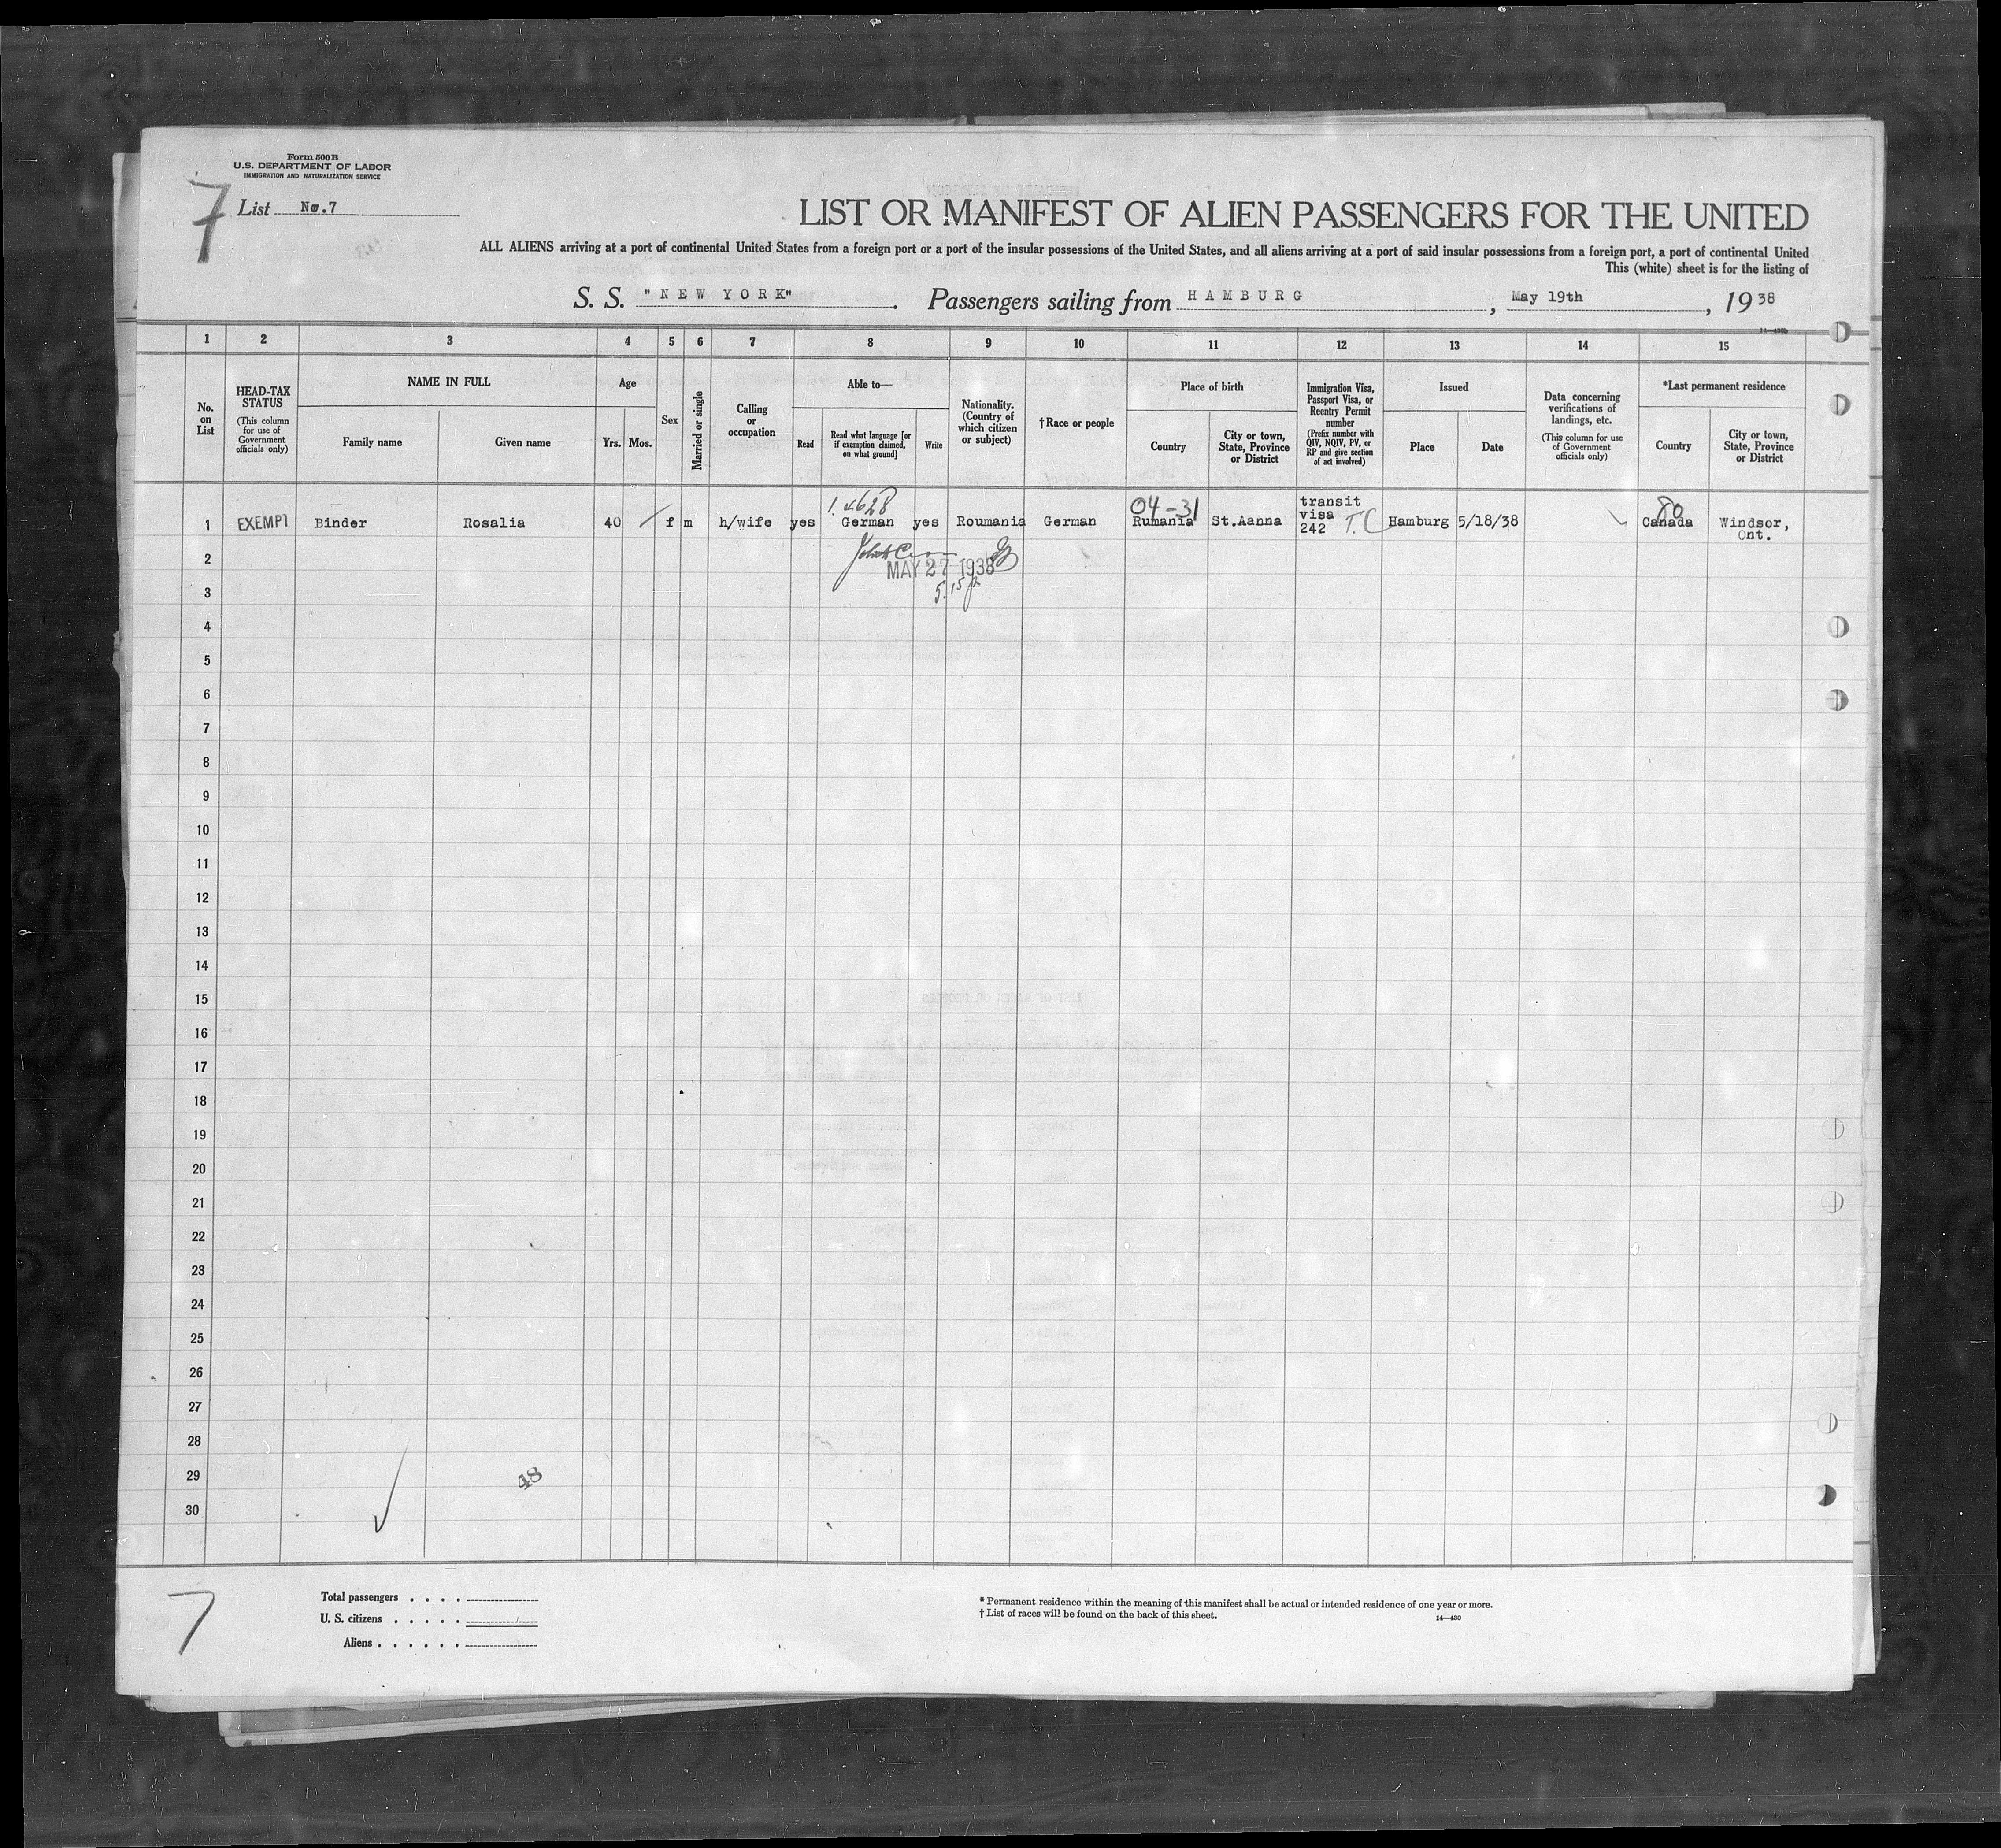 Form 500B
U.S. DEPARTMENT OF LABOR
IMMIGRATION AND NATURALIZATION SERVICE
7
List No.7
LIST OR MANIFEST OF ALIEN PASSENGERS FOR THE UNITED
ALL ALIENS arriving at a port of continental United States from a foreign port or a port of the insular possessions of the United States, and all aliens arriving at a port of said insular possessions from a foreign port, a port of continental United
This (white) sheet is for the listing of
S. S. "NEW YORK". Passengers sailing from HAMBURG, May 19th, 1938
1 2 3 4 5 6 7 8 9 10 11 12 13 14 15
No. on List
HEAD-TAX STATUS
(This column for use of Government officials only)
NAME IN FULL
Family name
Given name
Age
Yrs. Mos.
Sex
Married or single
Calling or occupation
Able to—
Read
Read what language [or if exemption claimed, on what ground]
Write
Nationality. (Country of which citizen or subject)
† Race or people
Place of birth
Country
City or town, State, Province or District
Immigration Visa, Passport Visa, or Reentry Permit number
(Prefix number with QIV, NQIV, PV, or RP and give section of act involved)
Issued
Place
Date
Data concerning verifications of landings, etc.
(This column for use of Government officials only)
*Last permanent residence
Country
City or town, State, Province or District
04-31 transit 80
1 EXEMPT Binder Rosalia 40 f m h/wife yes German yes Roumania German Rumania St.Aanna visa 242 T.C Hamburg 5/18/38 Canada Windsor, Ont.
MAY 27 1938
5.15 p
2
3
4
5
6
7
8
9
10
11
12
13
14
15
16
17
18
19
20
21
22
23
24
25
26
27
28
29
30
48
7
Total passengers . . . .
U. S. citizens . . . . .
Aliens . . . . . .
* Permanent residence within the meaning of this manifest shall be actual or intended residence of one year or more.
† List of races will be found on the back of this sheet.
14—430